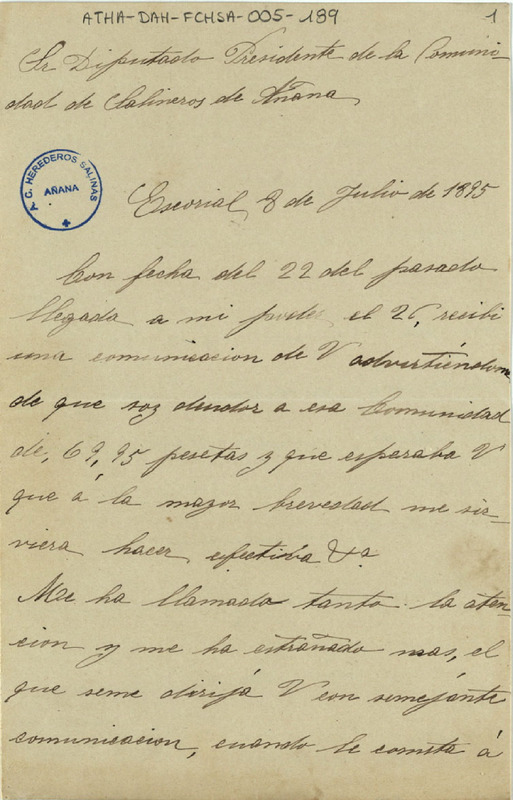 ATHA-DAH-FCHSA-005-189
1
Sr Diputado Presidente de la Comuni-
dad de Salineros de Añana
C. HEREDEROS SALINAS
AÑANA
Escorial, 8 de Julio de 1895
Con fecha del 22 del pasado
llegada a mi poder el 26, recibi
una comunicacion de V advirtiéndome
de que soy deudor a esa Comunidad
de, 69,95 pesetas y que esperaba V
que á la mayor brevedad me sir-
viera hacer efectiva &a.
Me ha llamado tanto la aten-
cion y me ha estrañado mas, el
que seme dirija V con semejante
comunicacion, cuando le consta á